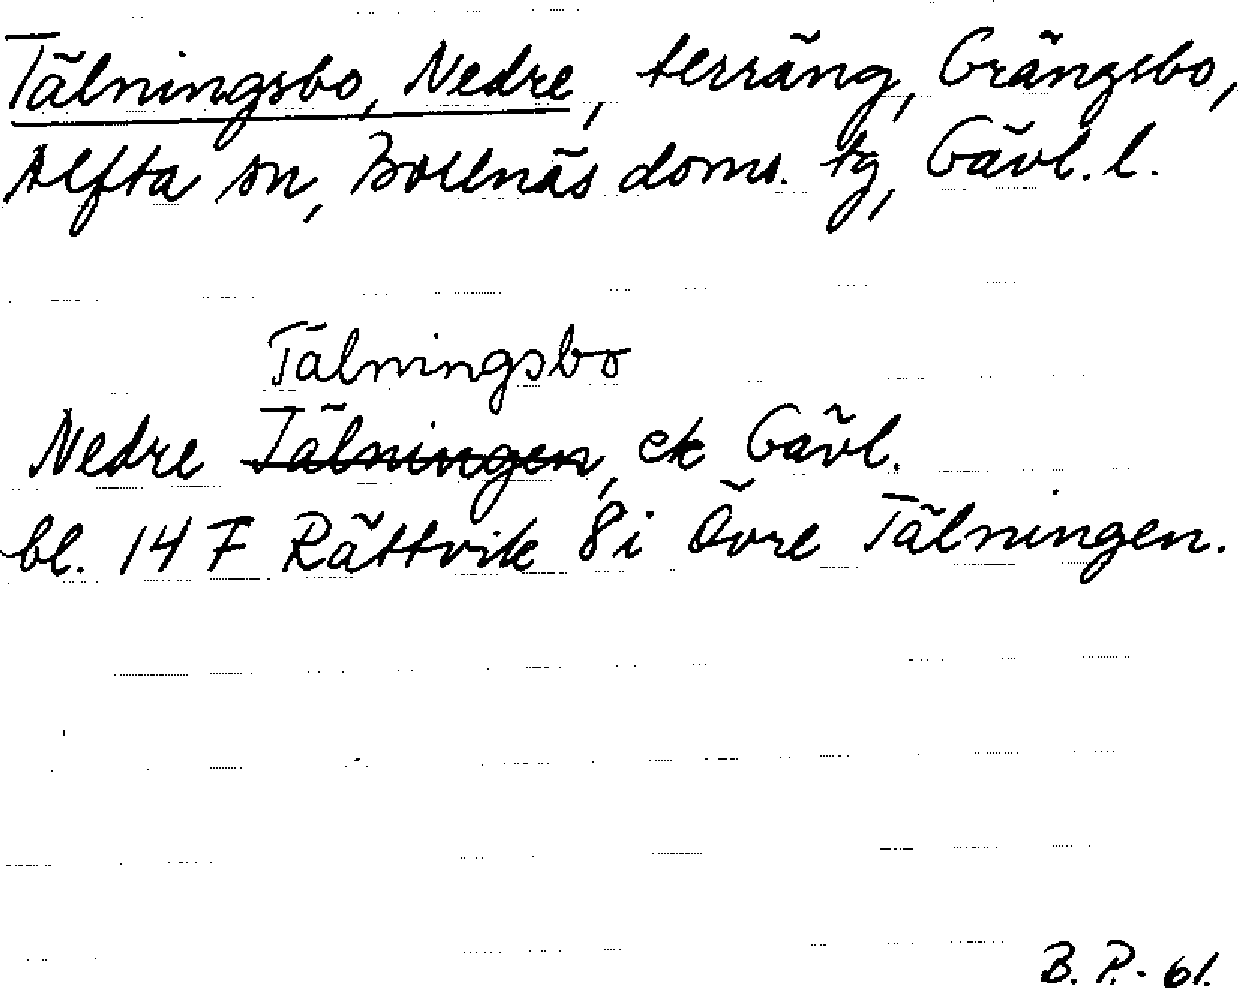 Tälningsbo, Nedre, terräng, Grängsbo,
Alfta sn, Bollnäs doms. tg, Gävl. l.
Tälningsbo
Nedre Tälningen, ek Gävl.
bl. 14 F Rättvik 8i Övre Tälningen.
B. P. - 61.